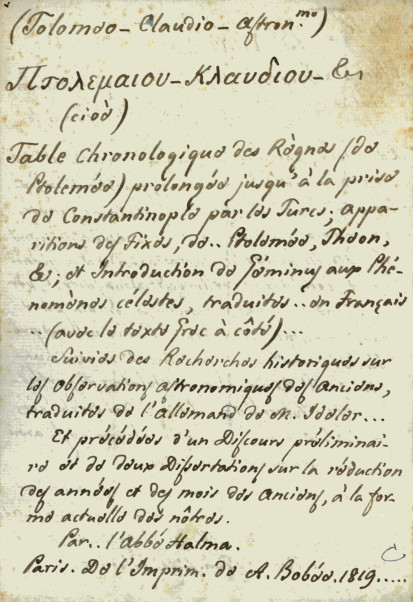 (Tolomeo - Claudio - Astron.mo)
Πτολεμαιου - Κλαυδιου - &
(cioè)
Table Chronologique des Règnes (de
Ptolemée) prolongée jusqu'à la prise
de Constantinople par les Turcs; appa-
ritions des Fixes, de.. Ptolemée, Théon,
&; et Introduction de Géminus aux Phé-
nomènes célestes, traduites.. en Français
.. (avec le texte Grec à côté)...
Suivies des Recherches historiques sur
les observations astronomiques des Anciens,
traduites de l'Allemand de M. Ideler...
Et précédées d'un Discours préliminai-
re et de deux Dissertations sur la réduction
des années et des mois des Anciens, à la for-
me actuelle des nôtres.
Par.. l'Abbé Halma.
Paris. De l'Imprim. de A. Bobée. 1819.....